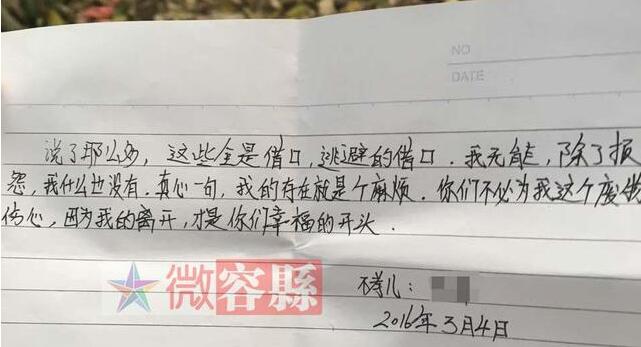 NO
DATE
说了那么多，这些全是借口，逃避的借口．我无能，除了损
怨，我什么也没有．真心一句，我的存在就是个麻烦．你们不必为我这个废物
伤心，因为我的离开，才是你们幸福的开头．
不孝儿：
2016年3月4日
微容縣